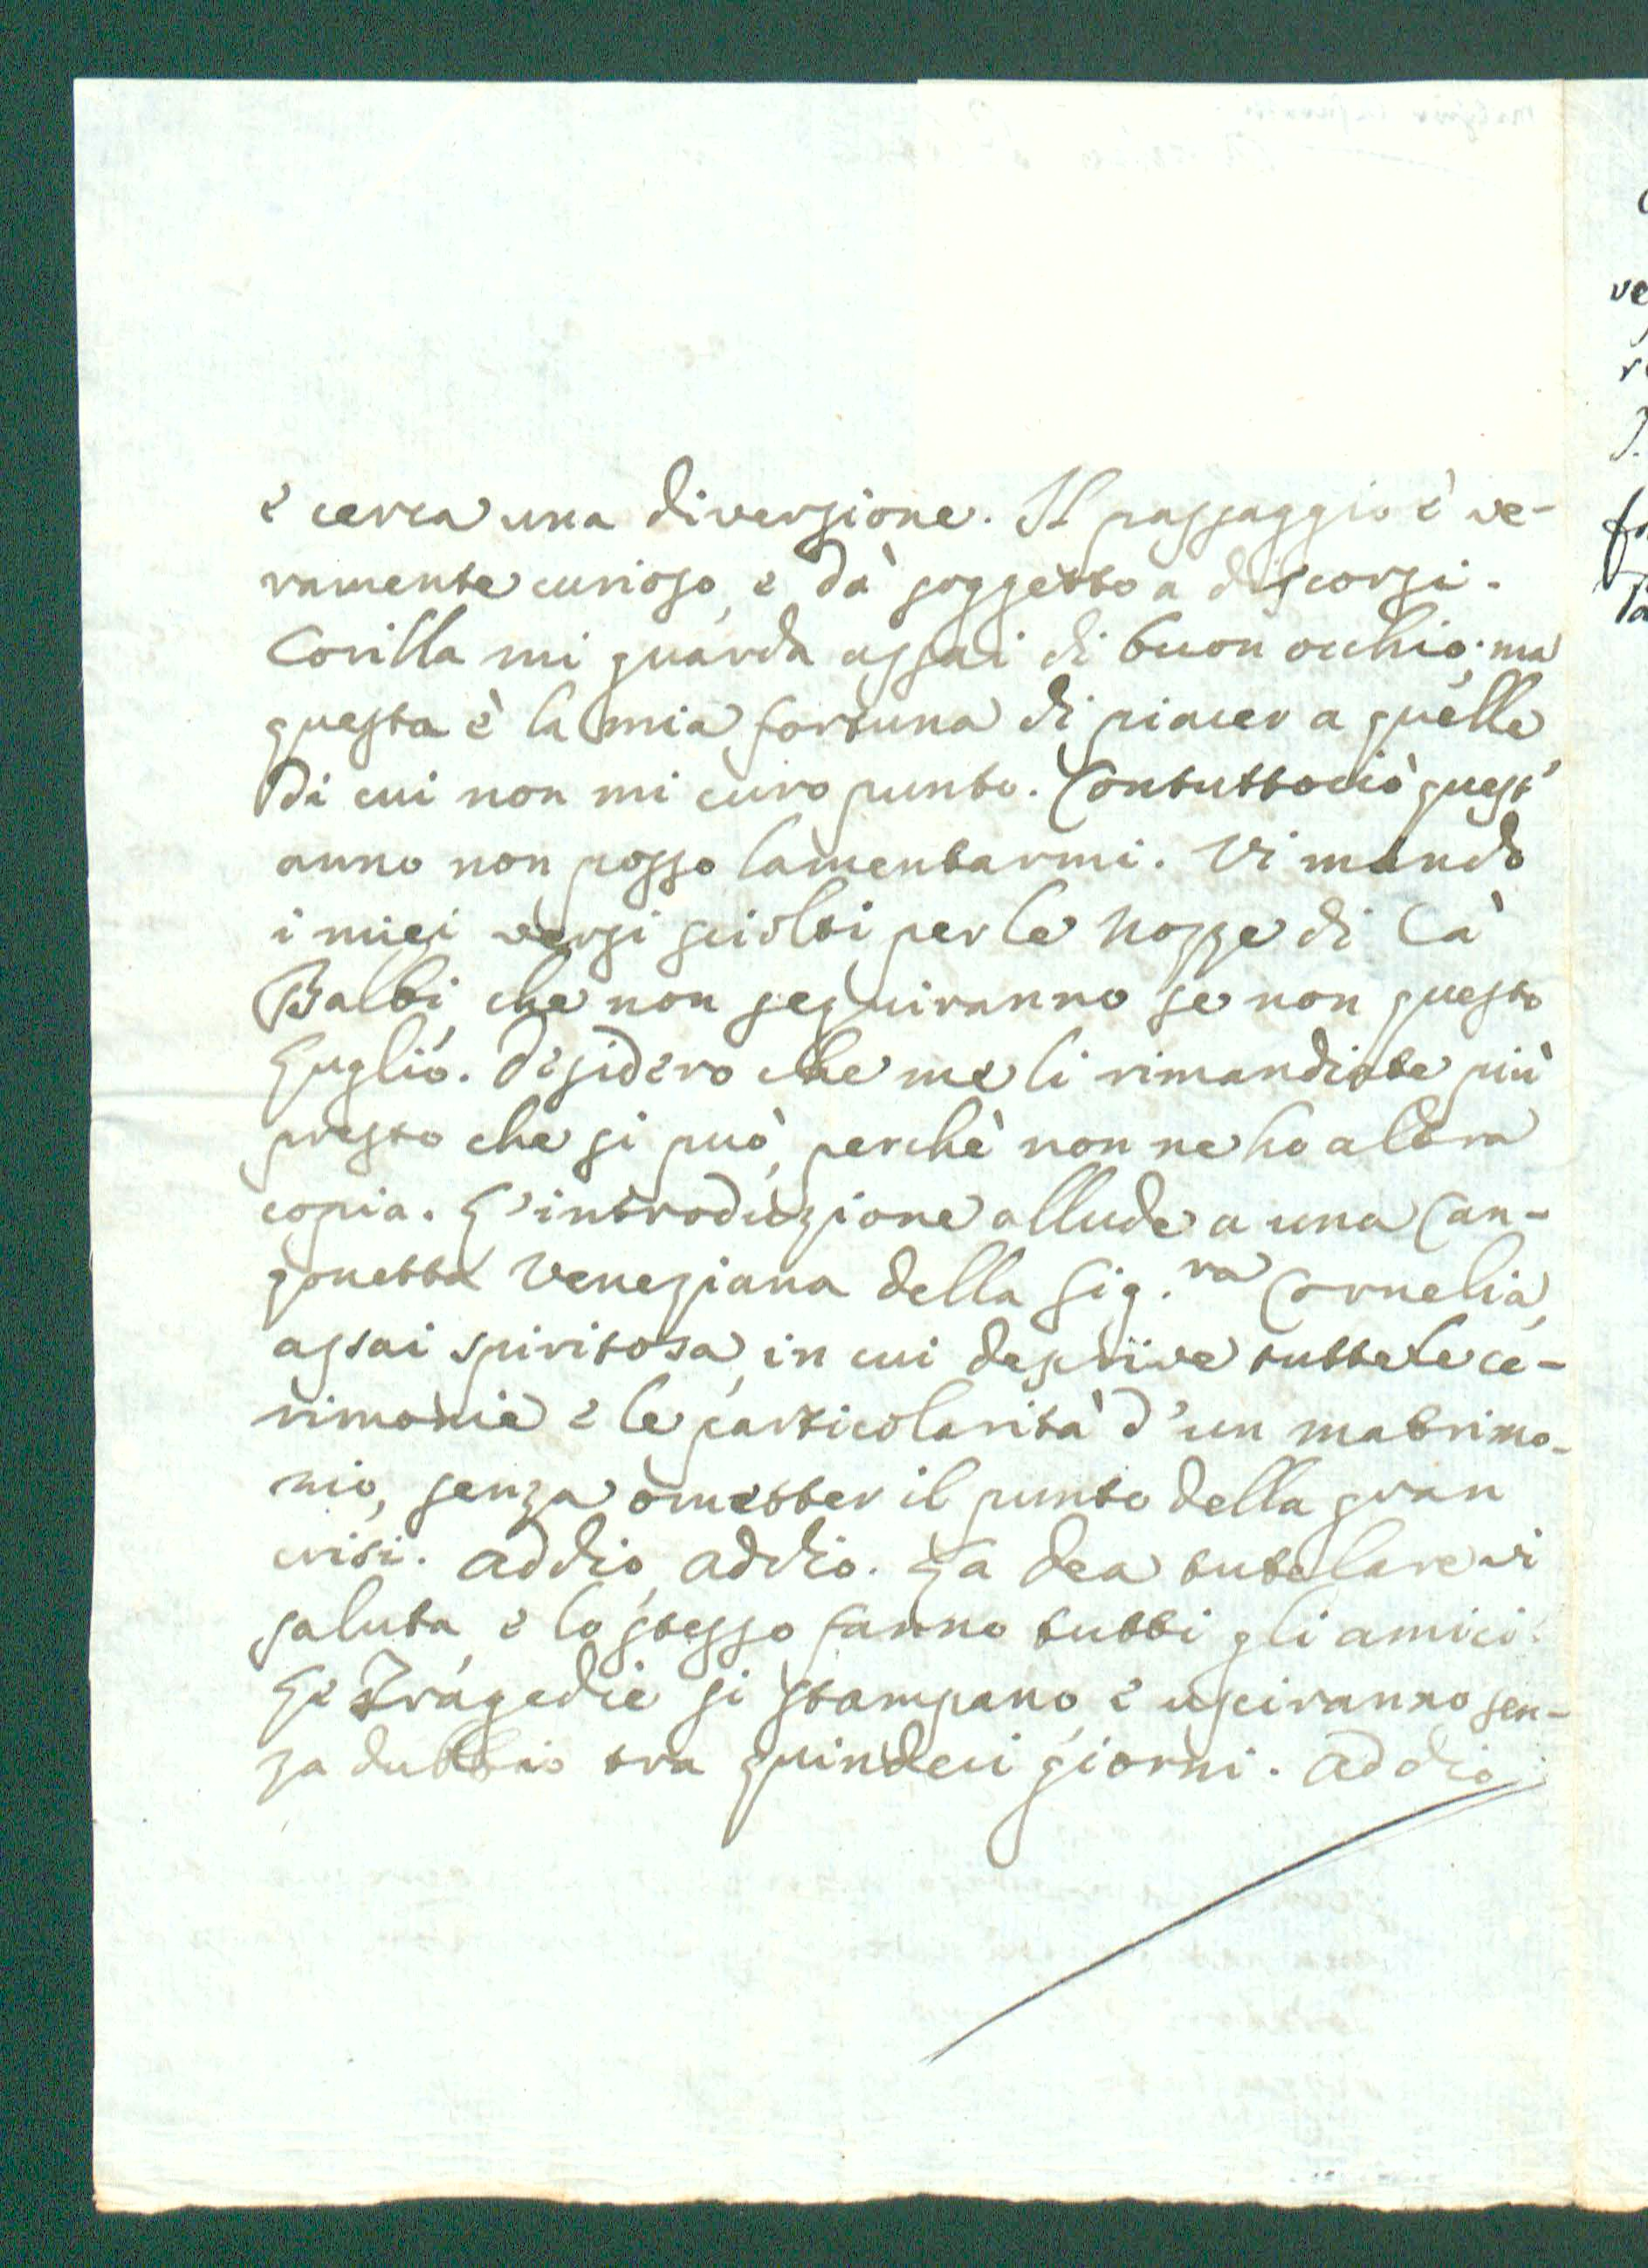 e cerca una diversione. Il passaggio è ve-
ramente curioso, e dà soggetto a discorsi.
Corilla mi guarda assai di buon occhio; ma
questa è la mia fortuna di piacer a quelle
di cui non mi curo punto. Contuttociò quest'
anno non posso lamentarmi. Vi mando
i miei versi sciolti per le nozze di Cà
Balbi, che non seguiranno se non questo
Luglio. Desidero che me li rimandiate più
presto che si può, perchè non ne ho altra
copia. L'introduzione allude a una Can-
zonetta Veneziana della Sig.ra Cornelia,
assai spiritosa, in cui descrive tutte le ce-
rimonie e le particolarità d'un matrimo-
nio, senza ometter il punto della gran
crisi. Addio, addio. La dea tutelare vi
saluta, e lo stesso fanno tutti gli amici.
Le Tragedie si stampano, e usciranno sen-
za dubbio tra quindeci giorni. Addio